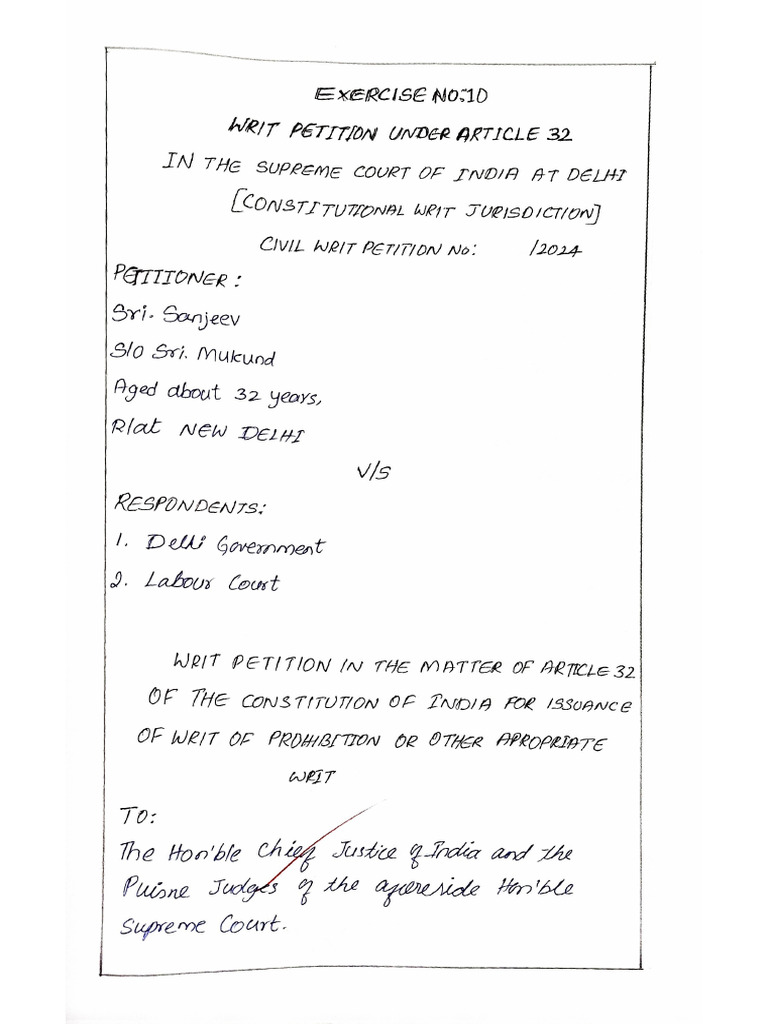 EXERCISE NO:10
WRIT PETITION UNDER ARTICLE 32
IN THE SUPREME COURT OF INDIA AT DELHI
[CONSTITUTIONAL WRIT JURISDICTION]
CIVIL WRIT PETITION No: /2024
PETITIONER:
Sri. Sanjeev
S/o Sri. Mukund
Aged about 32 years,
R/at NEW DELHI
V/S
RESPONDENTS:
1. Delhi Government
2. Labour Court
WRIT PETITION IN THE MATTER OF ARTICLE 32
OF THE CONSTITUTION OF INDIA FOR ISSUANCE
OF WRIT OF PROHIBITION OR OTHER APROPRIATE
WRIT
TO:
The Hon'ble Chief Justice of India and the
Puisne Judges of the aforeside Hon'ble
Supreme Court.